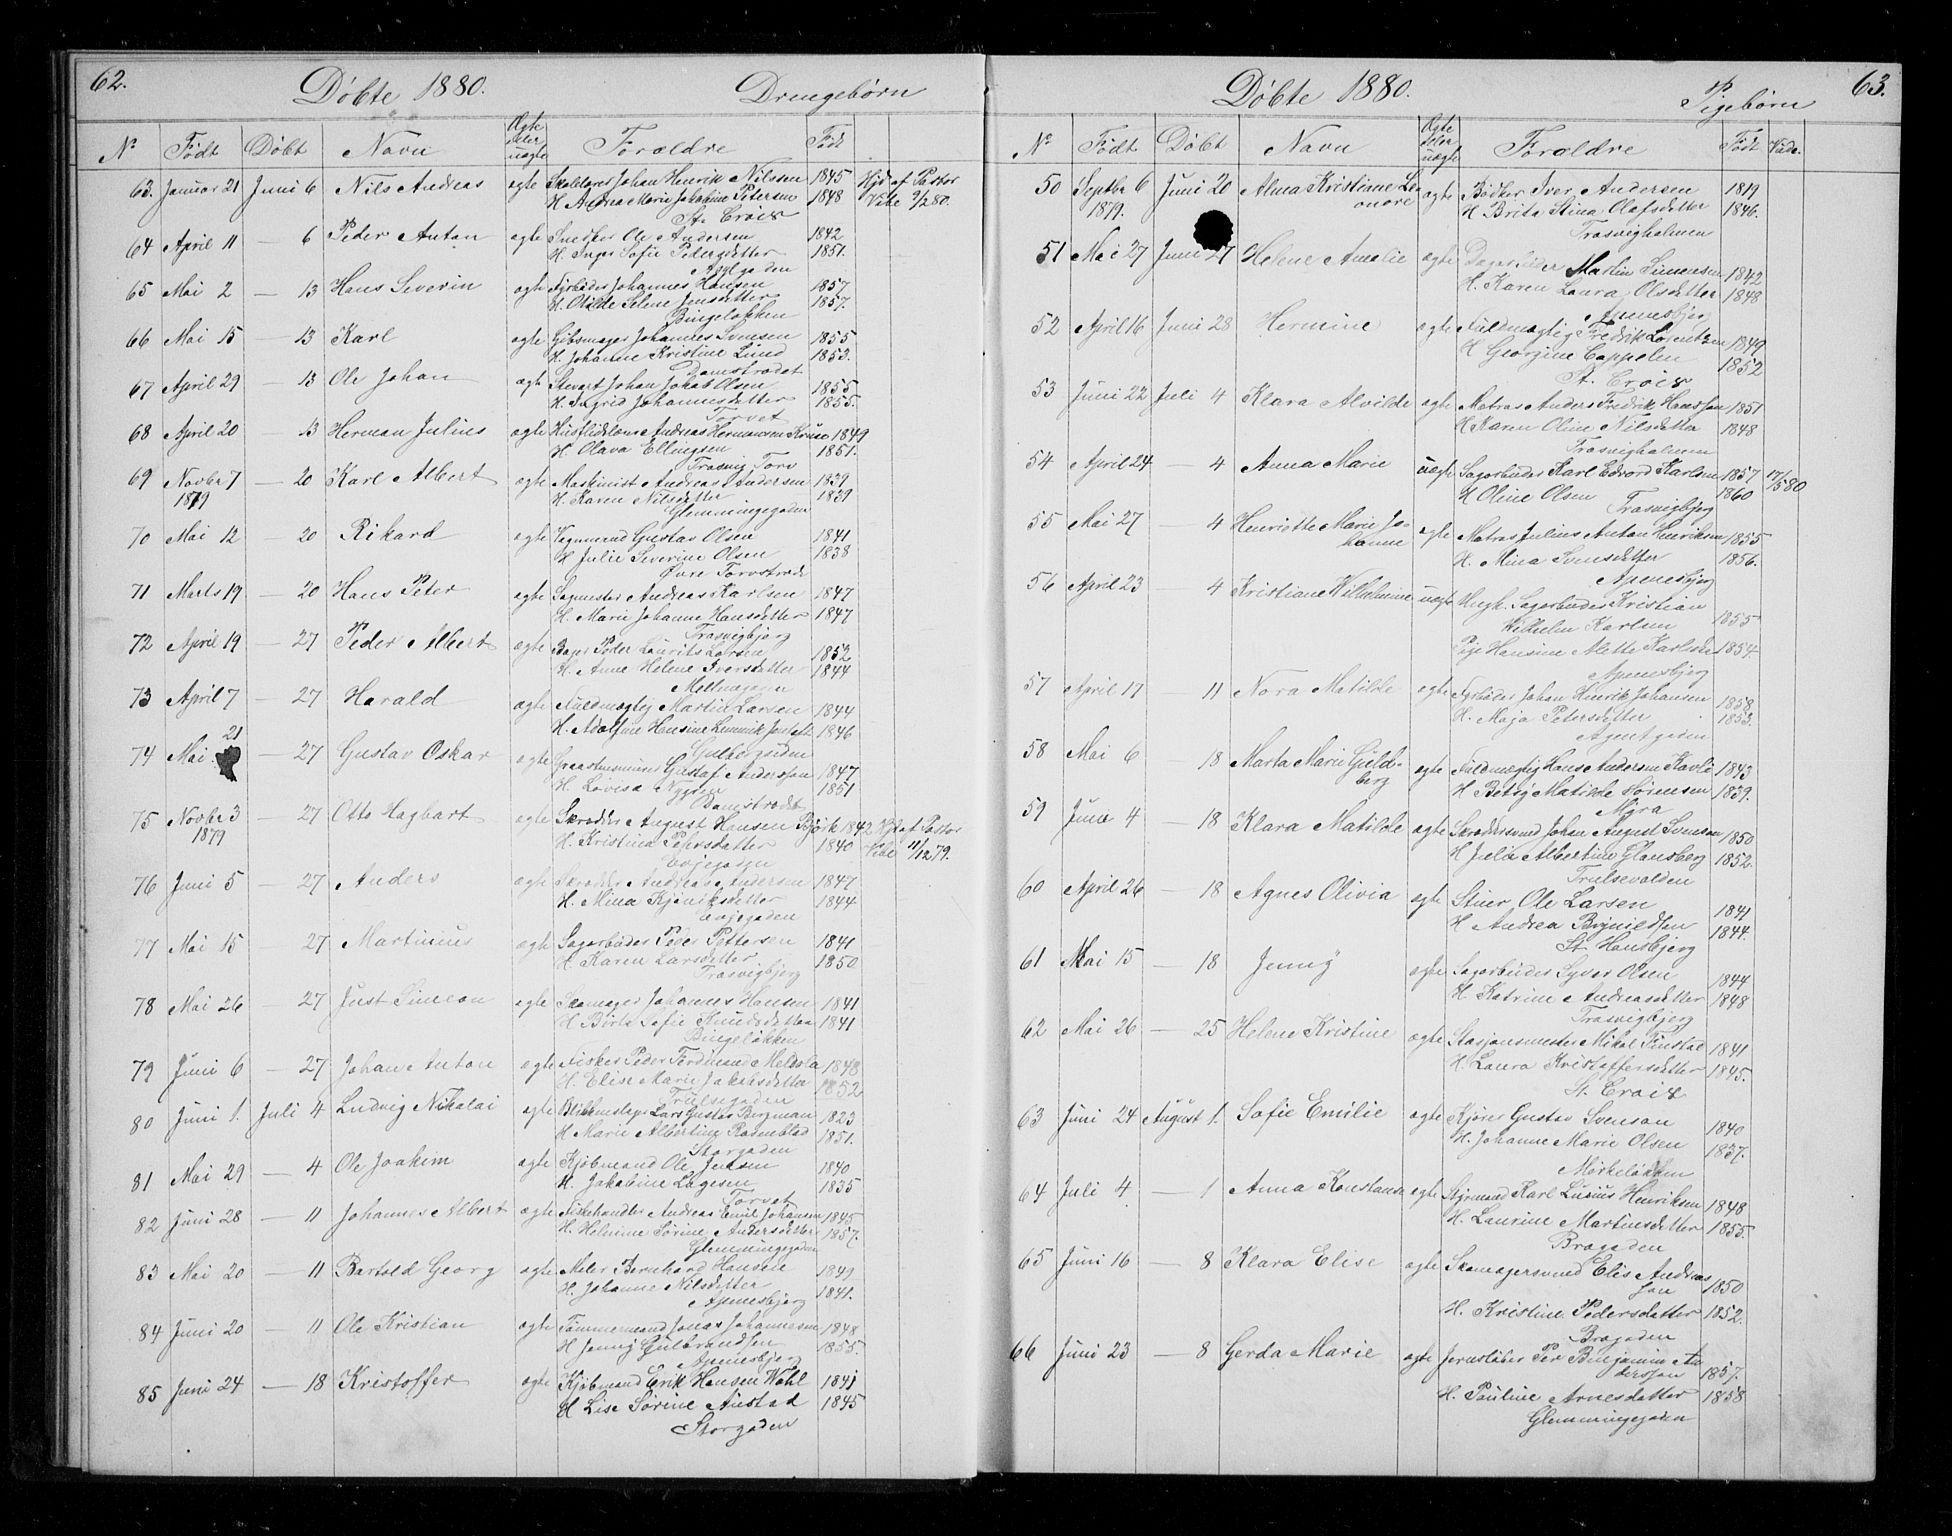 62.
Døbte 1880.
Drengebørn
No Født Døbt Navn Ægte eller uægte Forældre Født
63. Januar 21 Juni 6 Nils Andreas ægte Skolelærer Johan Henrik Nilssen 1845 Hjd af Pastor
H. Andrea Marie Johanne Petersen 1848 Vibe 3/2 80.
St. Croix
64 April 11 — 6 Peder Anton ægte Snedker Ole Andersen 1842
H. Inger Sofie Pedersdatter 1851.
Asylgaden
65 Mai 2 — 13 Hans Severin ægte Fyrbøder Johannes Hansen 1857
H. Otilde Selene Jensdatter 1857.
Bingeløkken
66 Mai 15 — 13 Karl ægte Gibsmager Johannes Svensen 1855
H. Johanne Kristine Lund 1853.
Damstrædet
67 April 29 — 13 Ole Johan ægte Stevert Johan Jakob Olsen 1855
H. Ingrid Johannesdatter 1855.
Torvet
68 April 20 — 13 Herman Julius ægte Andreas Hermansen Kruse 1849
H. Olava Ellingsen 1851.
Trosvig Torv
69 Novbr 7 — 20 Karl Albert ægte Maskinist Andreas Andersen 1839
1879 H. Karen Nilsdatter 1839
Glemmingegaden
70 Mai 12 — 20 Rikard ægte Vognmand Gustav Olsen 1841
H. Julie Severine Olsen 1838
Øvre Torvstræde
71 Marts 19 — 20 Hans Peter ægte Sagmester Andreas Karlsen 1847
H. Marie Johanne Hansdatter 1847
Trosvigbjerg
72 April 19 — 27 Peder Albert ægte Bager Peder Laurits Larsen 1852
H. Anne Helene Iversdatter 1844
Mellemgaden
73 April 7 — 27 Harald ægte Fuldmægtig Martin Larsen 1844
H. Adolfine Hansine 1846
21
74 Mai — 27 Gustav Oskar ægte Gustaf Andersson 1847
H. Lovisa Nygren 1851
Damstrædet
75 Novbr 3 — 27 Otto Hagbart ægte Skrædder August Hansen Bjørk 1842 Hjd af Pastor
1879 H. Kristina Pehrsdatter 1840 Vibe 11/12 79.
Evjegaden
76 Juni 5 — 27 Anders ægte Skrædder Andreas Andersen 1847
H. Mina Kjeniksdatter 1844
Evjegaden
77 Mai 15 — 27 Martinius ægte Sagarbeider Peder Pettersen 1841
H. Karen Larsdatter 1850
Trosvigbjerg
78 Mai 26 — 27 Just Simeon ægte Skomager Johannes Hansen 1841
H. Børta Sofie Knudsdatter 1841
Bingeløkken
79 Juni 6 — 27 Johan Anton ægte Fisker Peder Ferdinand 1848
H. Elise Marie Jakobsdatter 1852
Trulsegaden
80 Juni 1. Juli 4 Ludvig Nikolai ægte Blikkenslager Lars Gustav Bergman 1823
H. Marie Albertine Rosenblad 1851.
Storgaden
81 Mai 29 — 4 Ole Joakim ægte Kjøbmand Ole Jensen 1840
H. Jakobine Lagesen 1835
Torvet
82 Juni 28 — 11 Johannes Albert ægte Fiskehandler Andreas Emil Johansen 1845
H. Helmine Sørine Andersdatter 1857.
Glemmingegaden
83 Mai 20 — 11 Bartold Georg ægte Maler Bernhard Hansen 1849
H. Johanne Nilsdatter 1841.
Apenesbjerg
84 Juni 20 — 11 Ole Kristian ægte Tømmermand Jonas Johannesen 1848
H Jenny Gulbrandsen 1855.
Apenesbjerg
85 Juni 24 — 18 Kristoffer ægte Kjøbmand Erik Hansen Wahl 1841
H Lise Sørine Austad 1845
Storgaden
63.
Døbte 1880.
Pigebørn
No Født Døbt Navn Ægte eller uægte Forældre Født Vakc.
50 Septbr 6 Juni 20 Alma Kristine Le- ægte Bødker Iver Andersen 1819
1879. onore H. Brita Stina Olafsdatter 1846.
Trosvigholmen
51 Mai 27 Juni 27 Helene Amalie ægte Dagarbeider Martin Simensen 1842
H. Karen Laura Olsdatter 1848
Apenesbjerg
52 April 16 Juni 28 Hermine ægte Fuldmægtig Fredrik Lorentzen 1849
H Georgine Cappelen 1852
St. Croix
53 Juni 22 Juli 4 Klara Alvilde ægte Matros Anders Fredrik Hansson 1851
H Karen Oline Nilsdatter 1848
Trosvigholmen
54 April 24 — 4 Anna Marie uægte Sagarbeider Karl Edvard Karlsen 1857 17/5 80
H Oline Olsen 1860
Trosvigbjerg
55 Mai 27 — 4 Henriette Marie Jo- ægte Matros Julius Anton Henriksen 1855
hanne H. Mina Svensdatter 1856.
Apenesbjerg
56 April 23 — 4 Kristiane Wilhelmine uægte Ungk. Sagarbeider Kristian
Wilhelm Karlsen 1855
Pige Hansine Alette Karlsdr 1854
Apenesbjerg
57 April 17 — 11 Nora Matilde ægte Fyrbøder Johan Henrik Johansen 1858
H. Maja Petersdatter 1853.
Agentgaden
58 Mai 6 — 18 Marta Marie Guld- ægte Fuldmægtig Hans Andersen Kavli 1843
berg H Betsy Matilde Sørensen 1839.
Myra
59 Juni 4 — 18 Klara Matilde ægte Skræddersvend Johan August Svensson 1850
H Julie Albertine Glansberg 1852.
Trulsevolden
60 April 26 — 18 Agnes Olivia ægte Stuer Ole Larsen 1841
H Andrea Brynildsen 1844.
St. Hansbjerg
61 Mai 15 — 18 Jenny ægte Sagarbeider Syver Olsen 1844
H. Katrine Andreasdatter 1848
Trosvigbjerg
62 Mai 26 — 25 Helene Kristine ægte Stasjonsmester Mikal Finstad 1841
H. Laura Kristoffersdatter 1845.
St. Croix
63 Juni 24 August 1. Sofie Emilie ægte Kjører Gustav Svenson 1840
H. Johanne Marie Olsen 1837.
Mørkeløkken
64 Juli 4 — 1 Anna Konstanse ægte Styrmand Karl Lusius Henriksen 1848
H. Laurine Martinsdatter 1855.
Brogaden
65 Juni 16 — 8 Klara Elise ægte Skomagersvend Elis Andreas
son 1850
H. Kristine Pedersdatter 1852.
Brogaden
66 Juni 23 — 8 Gerda Marie ægte Jernstøber Per Benjamin An
dersson 1857.
H. Pauline Arnesdatter 1858
Glemmingegaden